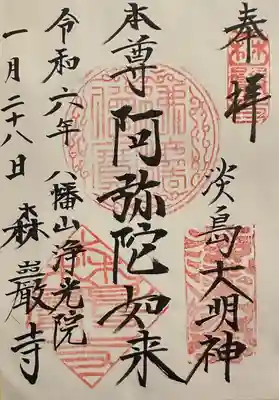 奉拝
淡島大明神
本尊 阿弥陀如来
八幡山浄光院
森巌寺
令和六年
一月二十八日